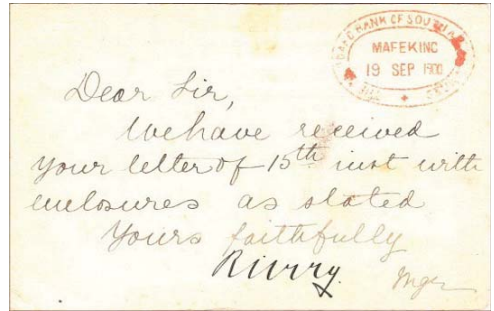 BANK OF SOUTH
MAFEKING
19 SEP 1900
Dear Sir,
We have received
your letter of 15th inst with
enclosures as stated
Yours faithfully
Mgr